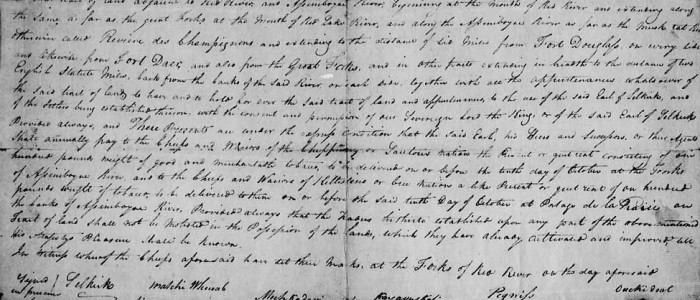 that tract of land adjacent to Red River and Assiniboyne River, beginning at the mouth of Red River and extending along
the same as far as the great Forks at the mouth of Red Lake River, and along the Assiniboyne River as far as the Musk Rat River
otherwise called Riviere des Champignons and extending to the distance of six Miles from Fort Douglass on every side
and likewise from Fort Daer and also from the Great Forks, and in other parts extending in breadth to the distance of two
English Statute Miles back from the banks of the said River, on each side, together with all the appurtenances whatsoever of
the said tract of land, to have and to hold for ever the said tract of land and appurtenances to the use of the said Earl of Selkirk, and
of the Settlers being established thereon, with the consent and permission of our Sovereign Lord the King, or of the said Earl of Selkirk
Provided always, and These Presents are under the express condition that the said Earl, his Heirs and Successors, or their Agents
Shall annually pay to the Chiefs and Warriors of the Chippeway or Saulteaux nation the Present or quit rent consisting of one
hundred pounds weight of good and merchantable tobacco, to be delivered on or before the tenth day of October at the Forks
of Assiniboyne River and to the Chiefs and Warriors of Killistino or Cree nation a like Present or quit rent of one hundred
pounds weight of tobacco, to be delivered to them on or before the said tenth Day of October at Portage de la Prairie on
the banks of Assiniboyne River. Provided always that the Traders hitherto established upon any part of the above mentioned
Tract of land shall not be molested in the Possession of the lands, which they have already cultivated and improved, till
His Majesty's Pleasure shall be known.
In Witness whereof the Chiefs aforesaid have set their Marks, at the Forks of Red River on the day aforesaid
Signed Selkirk Matche Wheseab Mechkaddewi Kayajieskebi Pegwiss Ouckidoat
in presence